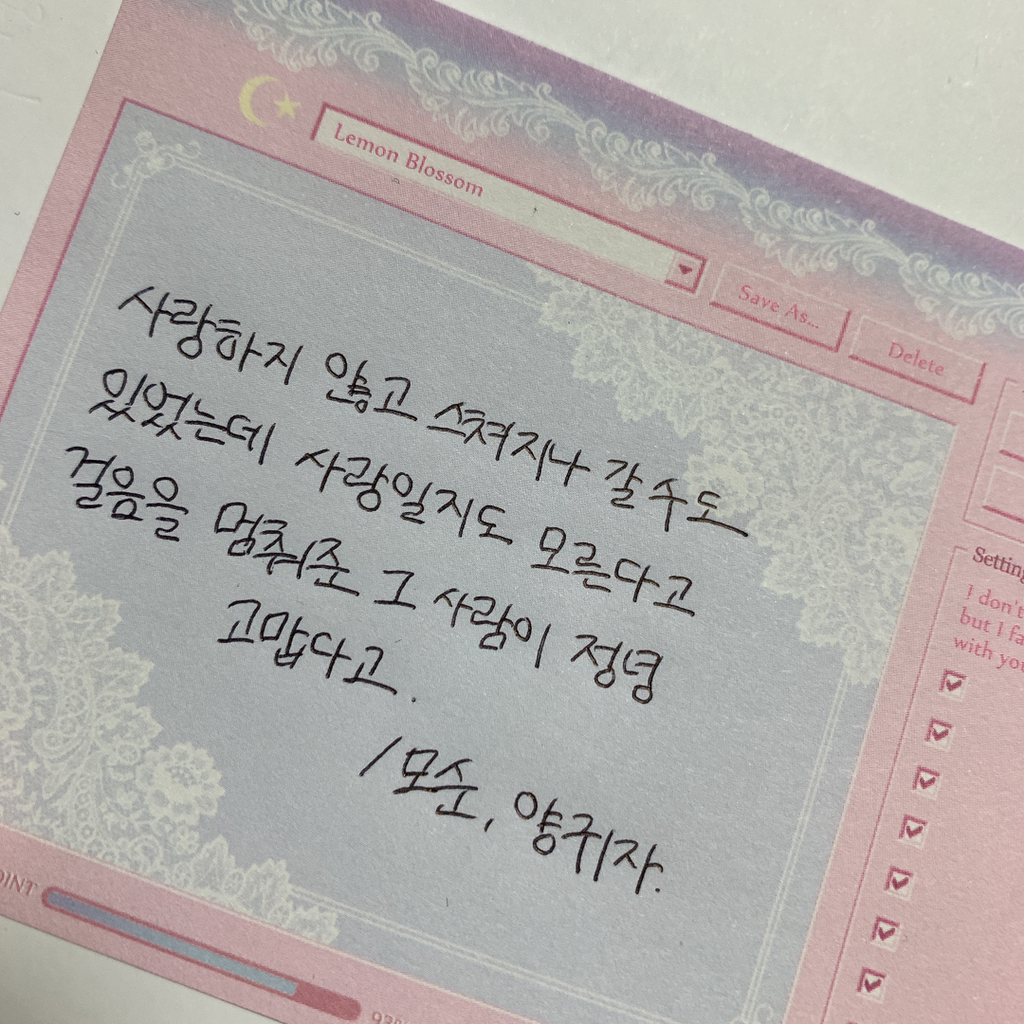 Lemon Blossom
Save As...
Delete
사랑하지 않고 스쳐지나 갈 수도
있었는데 사랑일지도 모른다고
걸음을 멈춰준 그 사람이 정녕
고맙다고.
/모순, 양귀자.
Setting
I don't
but I fa
with you
OINT
93%